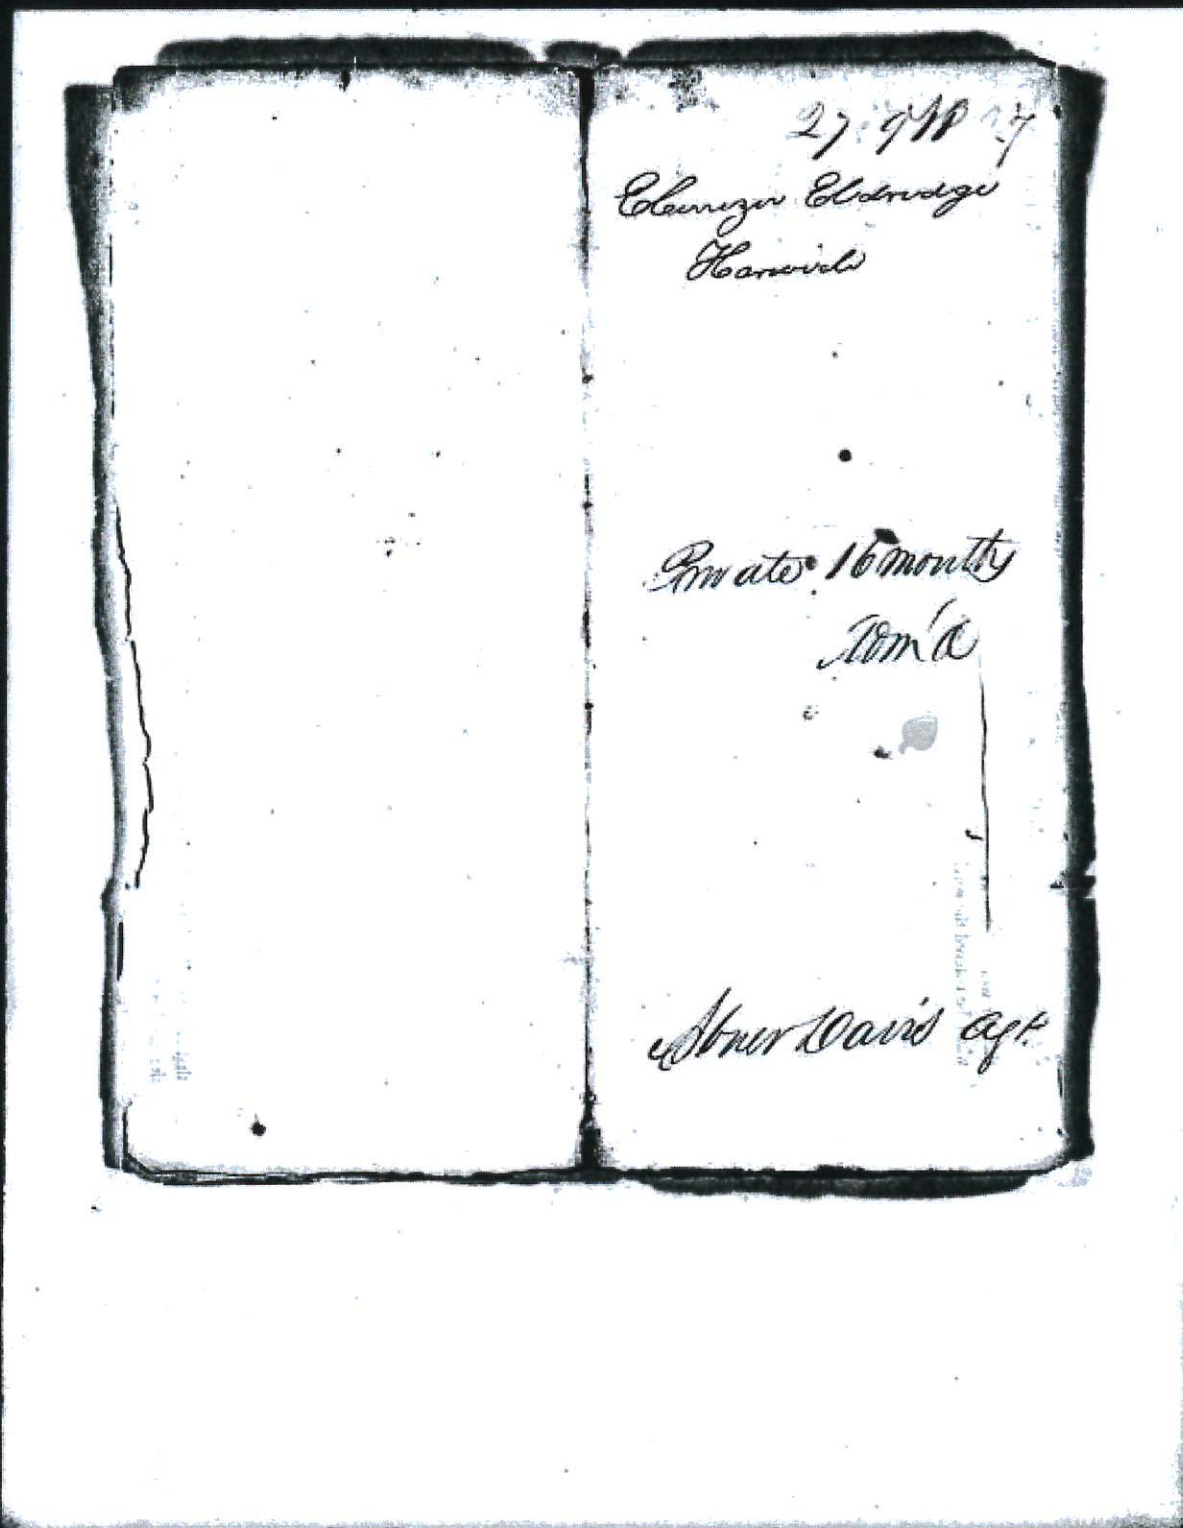 27
Ebenezer Eldredge
Harwich
Private 16 months
Adm'd
Abner Davis Agt.